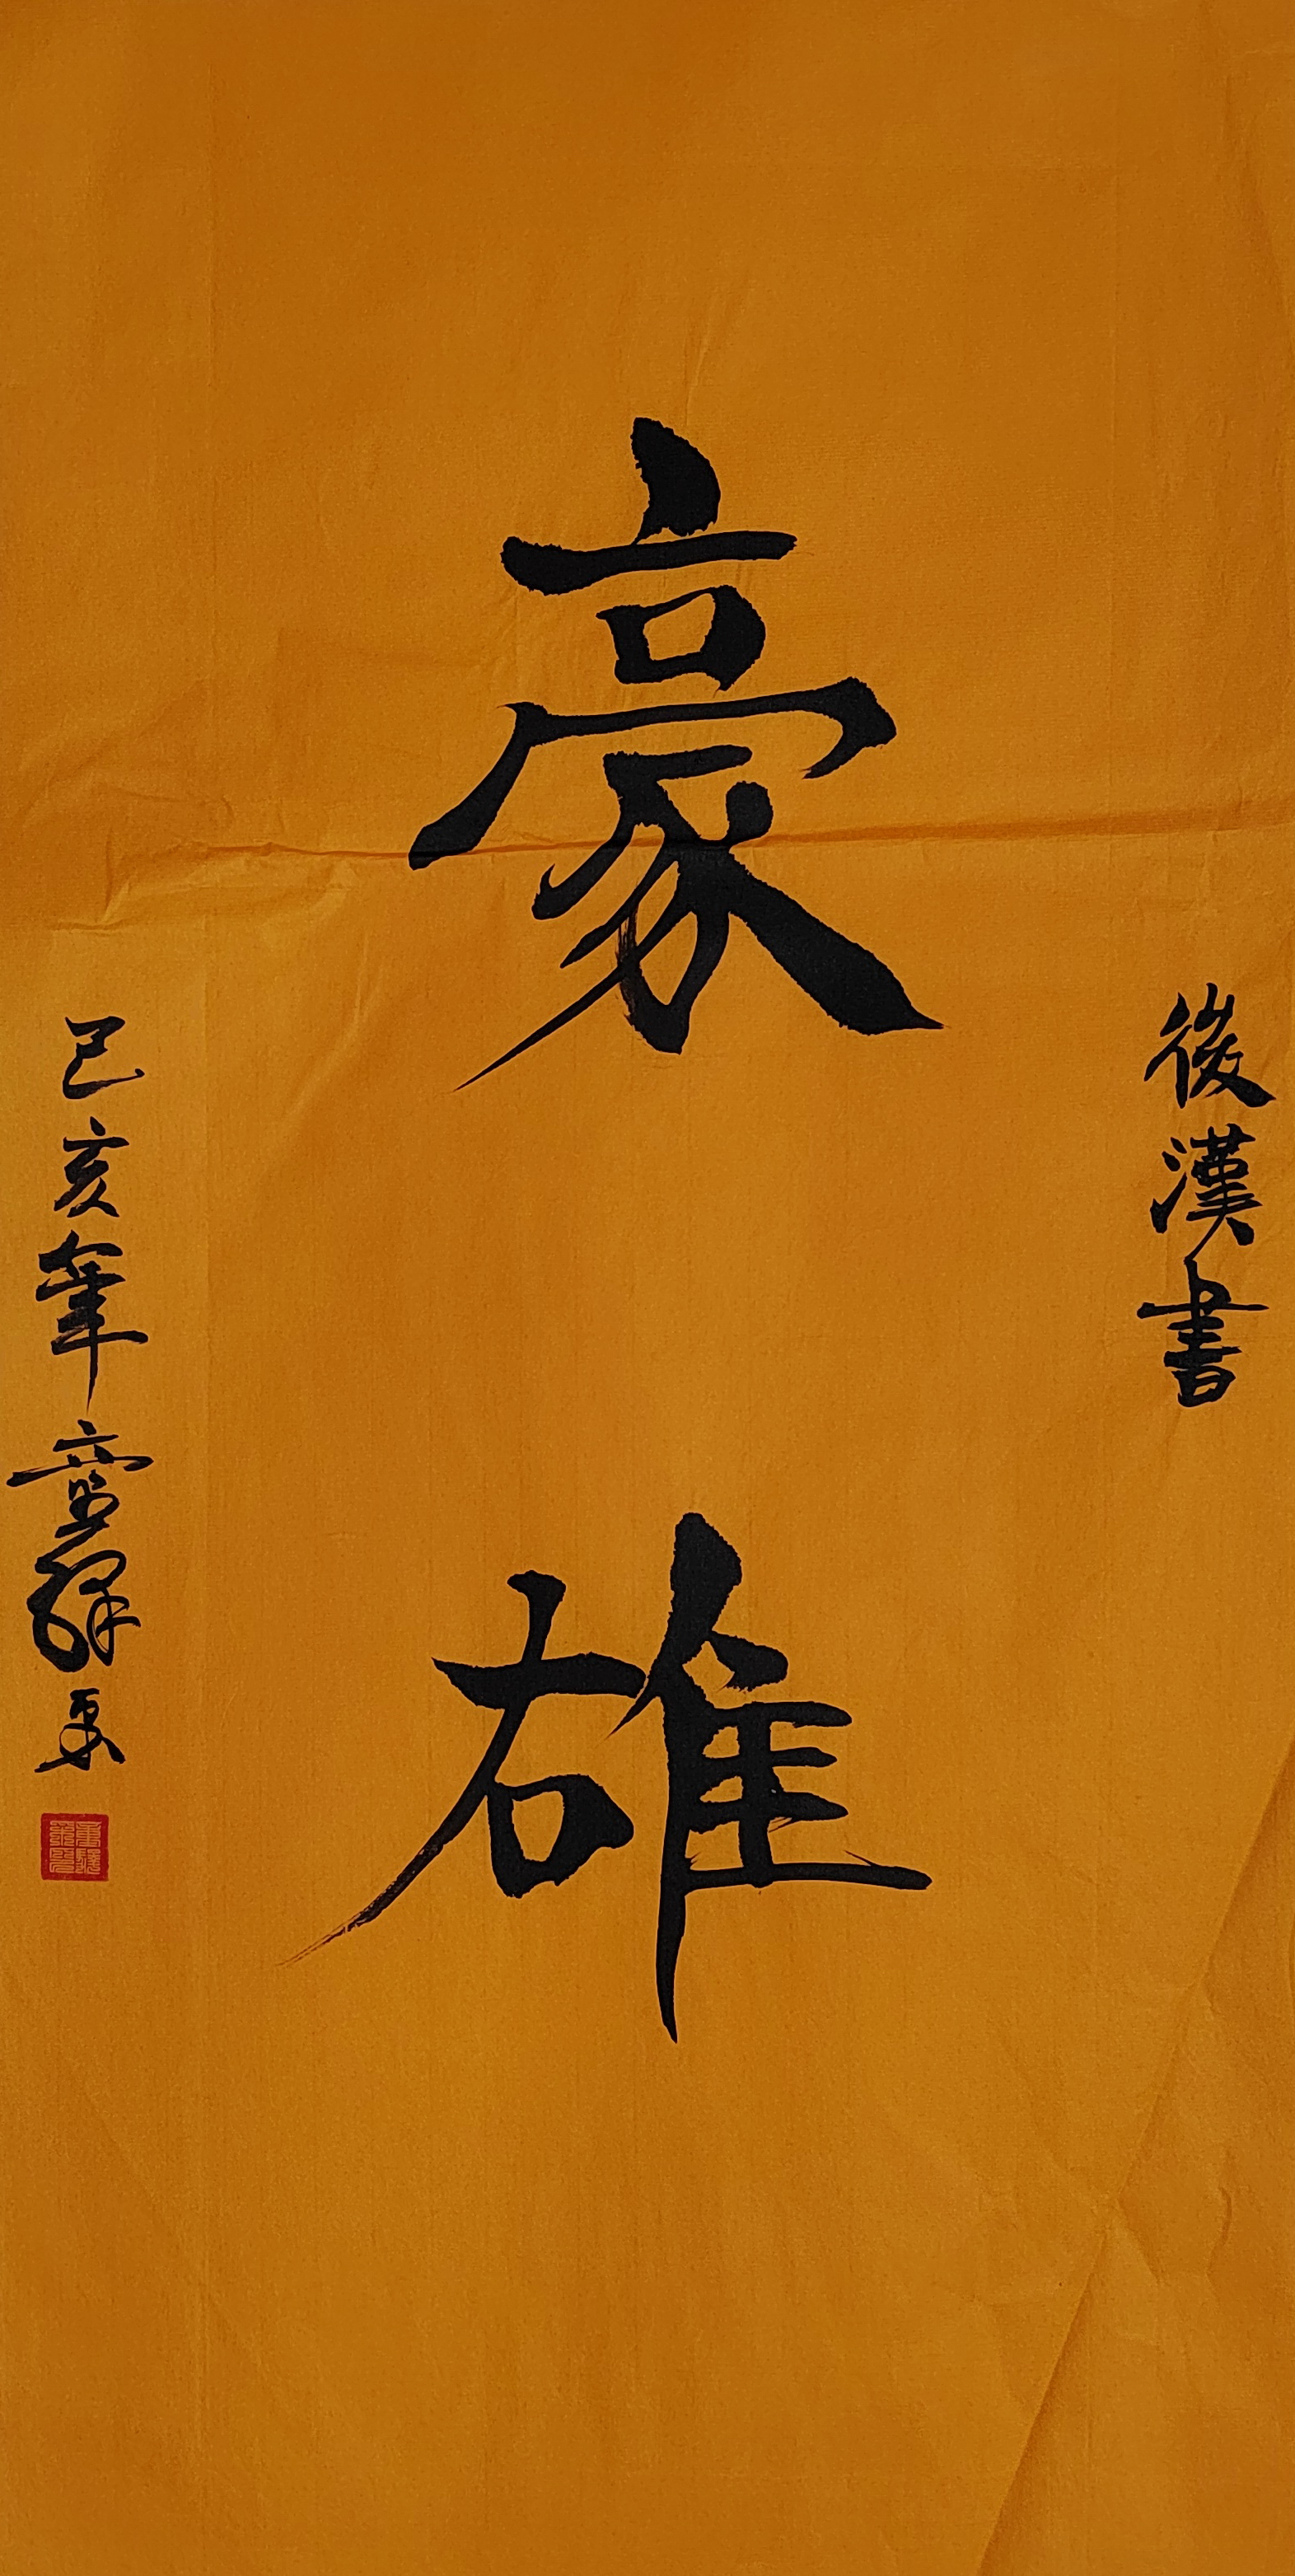 後漢書
豪雄
己亥年